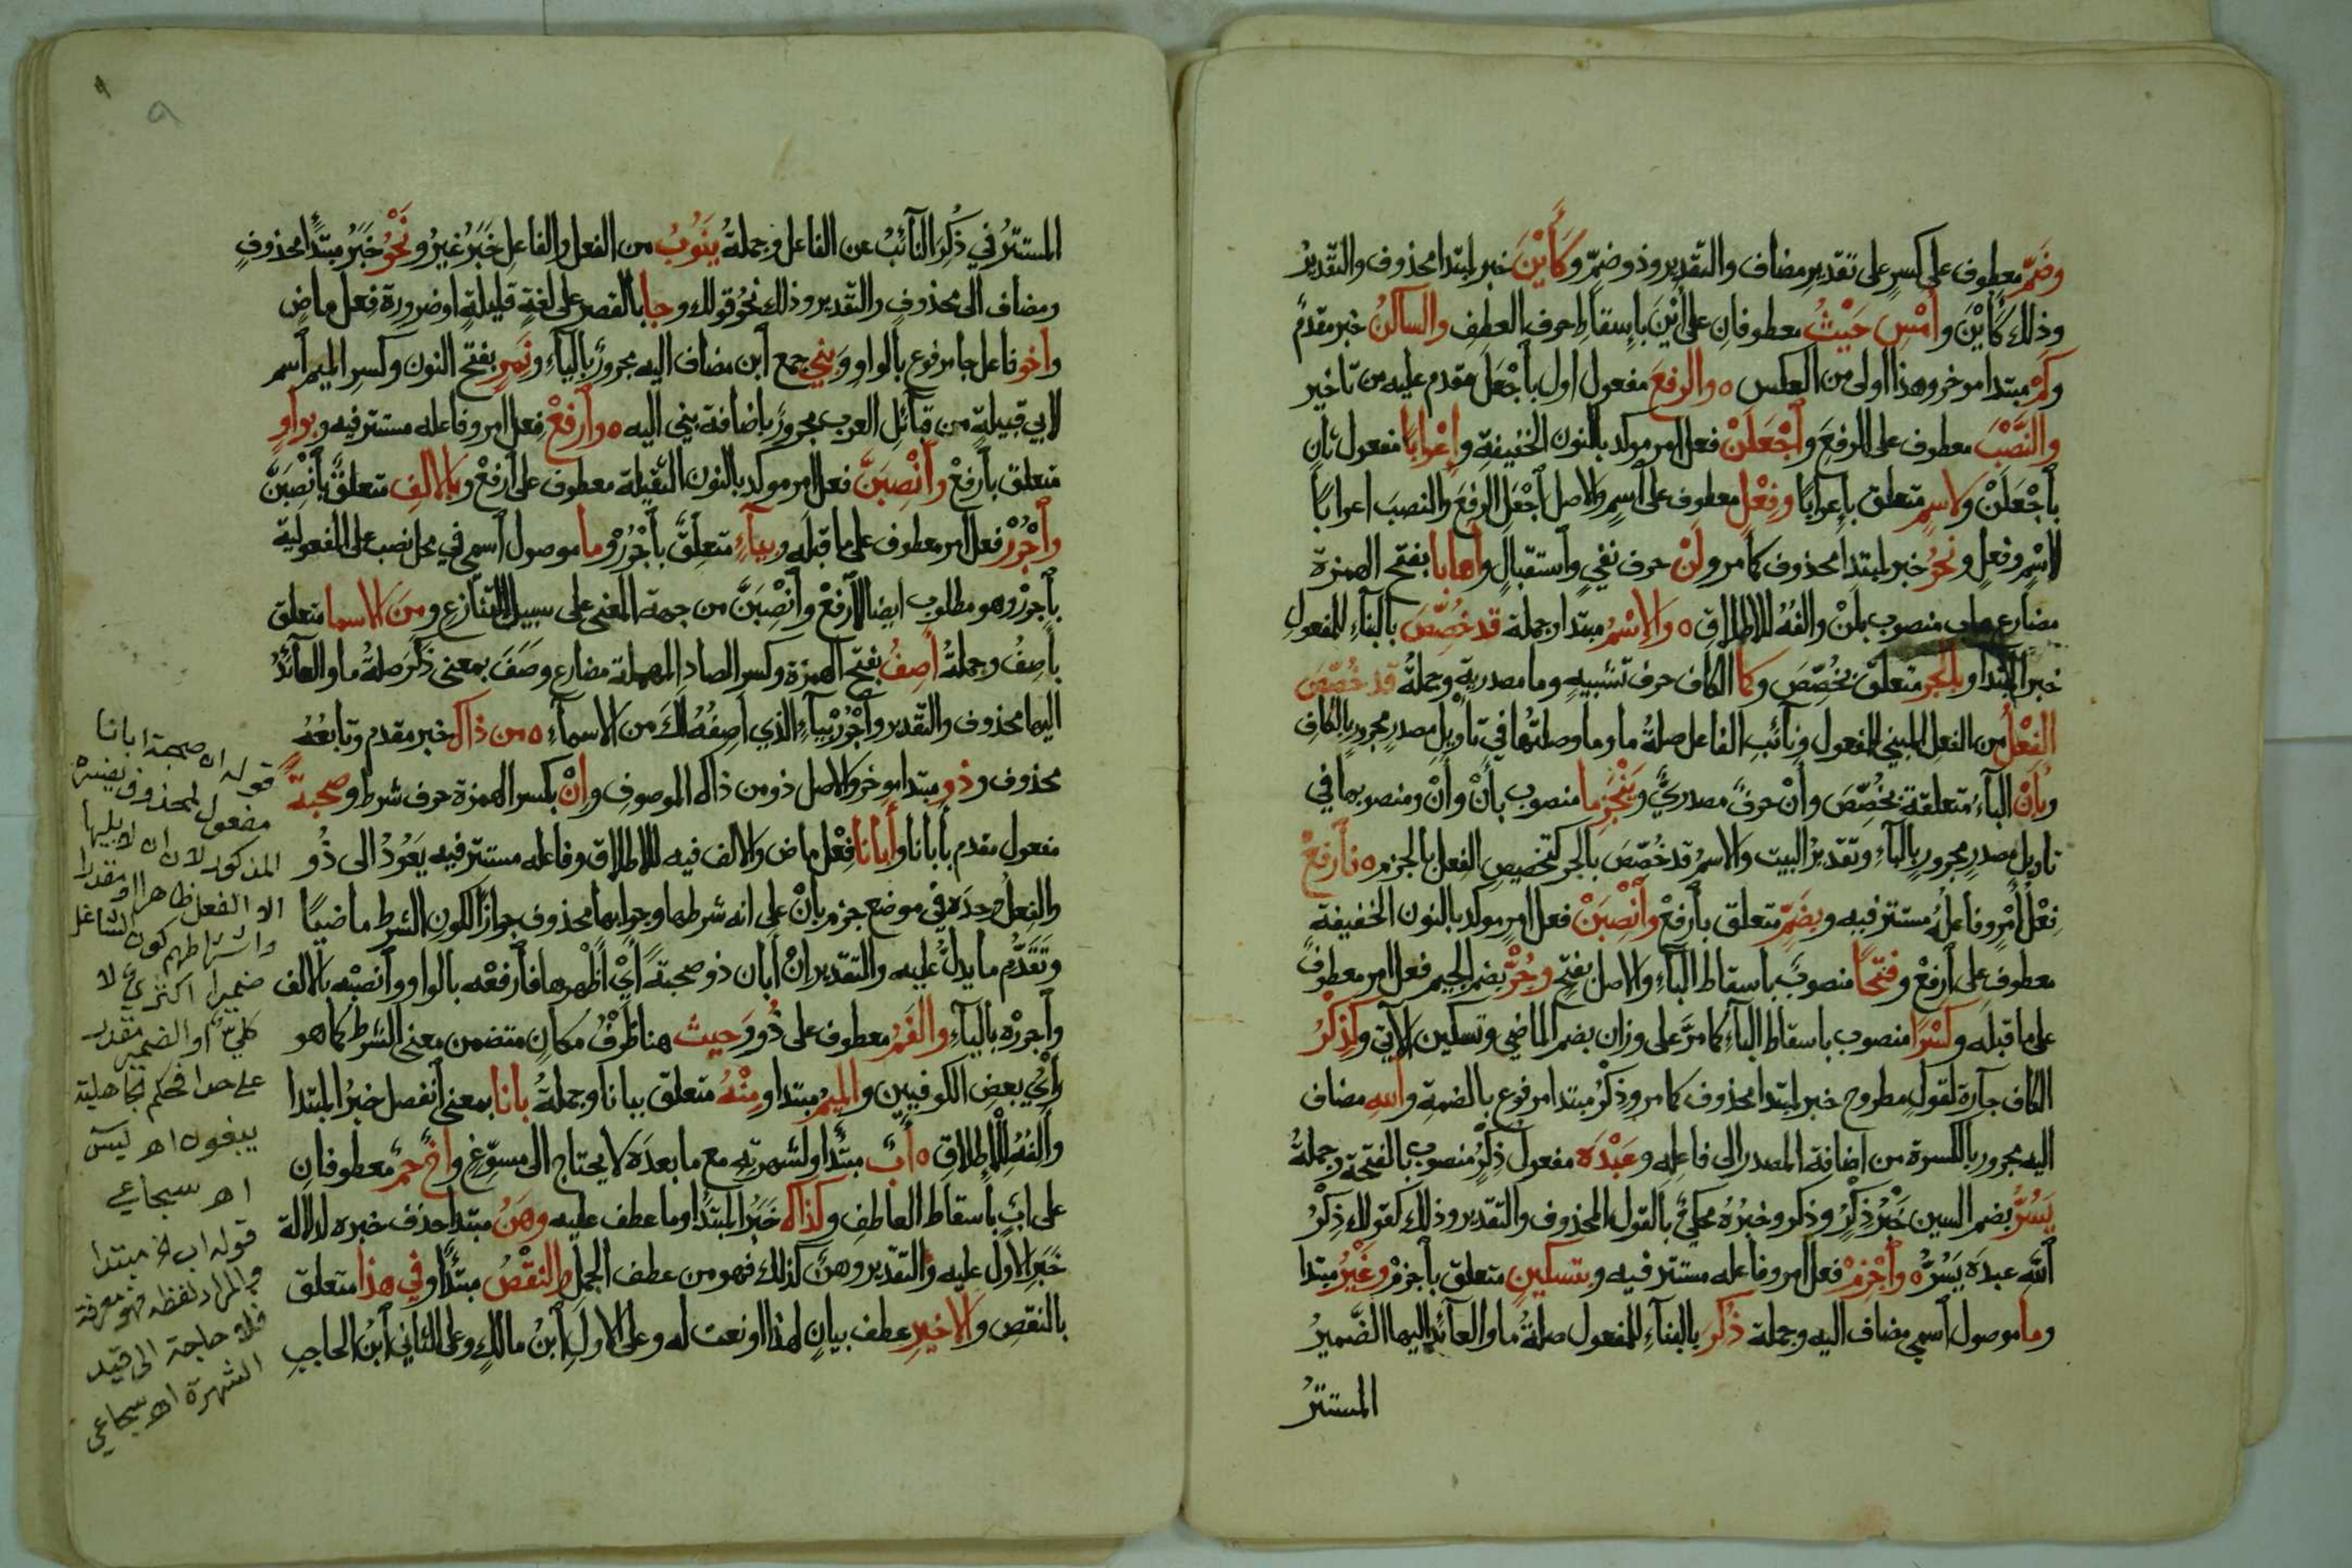 وضمّ معطوف على كسرٍ على تقدير مضاف والتقدير وذو ضمّ وكَأَيْنَ خبر لمبتدا محذوف والتقديرُ
وذلك كأَيْنَ وأَمْسِ حَيْثُ معطوفانِ على أَيْنَ بإسقاطِ حرف العطف والساكنُ خبر مقدم
وكَمْ مبتدا موخر وهذا اولى من العكس ٥ والرفعَ مفعول اول بٱجْعَلَنْ مقدم عليه من تاخير
والنَّصْبَ معطوف على الرفعَ وٱجْعَلَنْ فعل امر موكد بالنون الخفيفة وإعْرابًا مفعول ثان
بٱجْعَلَنْ ولاسمٍ متعلق بإعرابًا وفِعْلٍ معطوف على ٱسمٍ والاصل ٱجْعَلِ الرفعَ والنصبَ اعرابًا
لاسْمٍ وفعلٍ ونحوُ خبر لمبتدا محذوف كما مر ولَنْ حرف نفيٍ وٱستقبالٍ وأهابا بفتح الهمزة
مضارع هاب منصوب بلَنْ والفهُ للاطلاق ٥ والاِسْمُ مبتدا وجملة قد خُصِّصَ بالبناءِ للمفعولِ
خبر المبتدا وبالجر متعلق بخُصِّصَ وكما الكاف حرف تشبيهٍ وما مصدرية وجملةُ قد خُصِّصَ
الفِعْلُ من الفعل المبني للمفعول ونائبِ الفاعل صلةُ ما وما وصلتُها في تأويلِ مصدرٍ مجرورٍ بالكافِ
وبأنْ الباءُ متعلقة بخُصِّصَ وأنْ حرفٌ مصدريٌّ ويَنْجَزِما منصوب بأنْ وأنْ ومنصوبها في
تاويل مصدرٍ مجرورٍ بالباءِ وتقديرُ البيت والاسمُ قد خُصِّصَ بالجر كتخصيصِ الفعل بالجزم ٥ فٱرفعْ
فِعْلُ أمْرٍ وفاعلُهُ مستتر فيه وبضَمٍّ متعلق بٱرفعْ وٱنْصِبَنْ فعل امرٍ موكد بالنون الخفيفة
معطوف على ٱرفعْ وفتحًا منصوبٌ باسقاط الباءِ والاصل بفتحٍ وجُرَّ بضم الجيم فعل امر معطوف
على ما قبله وكَسْرًا منصوب باسقاط الباءِ كما مرَّ على وزان بضم الماضي وتسكين الآتي وكذِكْرُ
الكاف جارة لقولٍ مطروح خبر لمبتدا محذوف كما مر وذِكْرُ مبتدا مرفوع بالضمة واللهِ مضاف
اليه مجرور بالكسرة من اضافة المصدر الى فاعله وعَبْدَه مفعول ذِكْرُ منصوب بالفتحة وجملةُ
يَسُرُّ بضم السين خبرُ ذِكْرُ وذكر وخبرُهُ محكيٌّ بالقول المحذوف والتقدير وذلك كقولك ذِكْرُ
ٱللهِ عبدَه يَسُرُّ ٥ وٱجْزِمْ فعل امر وفاعله مستتر فيه وبتسكينٍ متعلق بٱجزمْ وغَيْرُ مبتدا
وما موصول ٱسمي مضاف اليه وجملة ذُكِرَ بالبناءِ للمفعول صلةُ ما والعائد اليها الضَّميرُ
المستترُ
المستترُ في ذُكِرَ النائبُ عن الفاعل وجملةُ يَنُوبُ من الفعل والفاعلِ خَبَرُ غيرُ ونَحْوُ خَبَرُ مبتدًا محذوفٍ
ومضاف الى محذوفٍ والتقدير وذلك نحوُ قولك وجا بالقصر على لغةٍ قليلةٍ او ضرورة فعل ماضٍ
وأخو فاعل جا مرفوع بالواوِ وَبني جمع ٱبن مضاف اليه مجرورٌ بالياءِ ونَمِر بفتح النون وكسر الميم ٱسم
لأبي قبيلةٍ من قبائلِ العرب مجرورٌ باضافة بني اليه ٥ وٱرفعْ فعل امر وفاعله مستتر فيه وبواوٍ
متعلق بٱرفعْ وٱنْصِبَنَّ فعل امر موكد بالنون الثقيلة معطوف على ٱرفعْ وبالالفِ متعلقٌ بٱنْصِبَنَّ
وٱجْرُرْ فعل امر معطوف على ما قبله وبياءٍ متعلقٌ بٱجْرُرْ وما موصول ٱسمي في محل نصب على المفعولية
بٱجررْ وهو مطلوب ايضا لٱرفعْ وٱنْصِبَنَّ من جهة المعنى على سبيل التنازع ومنَ الاسما متعلق
بأصفُ وجملةُ أَصِفُ بفتح الهمزة وكسر الصادِ المهملة مضارع وصَفَ بمعنى ذَكَرَ صلةُ ما والعائدُ
اليها محذوف والتقدير وٱجْرُرْ بياءٍ الذي أصِفُهُ لكَ من الاسماءِ ٥ من ذاك خبر مقدم وتابعُهُ
محذوف وذو مبتدا موخر والاصل ذو من ذاك الموصوفِ وإنْ بكسر الهمزة حرف شرط وصحبةً
مفعول مقدم بأبانا وأبانا فعْل ماض والالف فيه للاطلاق وفاعله مستتر فيه يَعُودُ الى ذُو
والفعلُ وحدَه في موضع جزم بإنْ على انه شرطها وجوابها محذوف جوازًا لكونِ الشرط ماضيًا
وتَقَدُّم ما يدلُّ عليه والتقدير انْ أبان ذو صحبةً أيْ أظْهَرها فٱرفعْه بالواو وٱنصبْه بالالف
وٱجررْه بالياءِ والفَمُ معطوف على ذُو وَحيث هنا ظرْفُ مكانٍ متضمن معنى الشرط كما هو
رأيُ بعضِ الكوفيين والميمُ مبتدا ومِنْهُ متعلق ببانا وجملةُ بانا بمعنى ٱنفصل خبرُ المبتدا
وألفُهُ للاطلاقِ ٥ أبٌ مبتدأ ولشهرتِهِ مع ما بعدَه لا يحتاج الى مسوّغٍ وأخٌ حمٌ معطوفانِ
على ابٌ بإسقاط العاطفِ وكذاك خَبَرُ المبتدا وما عطف عليه وهَنُ مبتدا حذف خبره لدلالة
خبر الاول عليه والتقدير وهنٌ كذلك فهو من عطف الجمل والنقْصُ مبتدًا وفي هذا متعلق
بالنقصِ والاخيرِ عطف بيانٍ لهذا او نعت له وعلى الاولِ ٱبنُ مالكٍ وعلى الثاني ٱبنُ الحاجبِ
قوله ان صحبة ابانا
مفعول لمحذوف يفسره
المذكور لان ان لا يليها
الا الفعل ظاهرا او مقدرا
واشتراطهم كون الشاغل
ضميرا اكثريٌّ لا
كليٌّ أو الضمير مقدر
على حد افحكم الجاهلية
يبغون اهـ ليس
اهـ سجاعي
قوله اب الخ مبتدا
والمراد لفظه فهو معرفة
فلا حاجة الى قيد
الشهرة اهـ سجاعي
٩